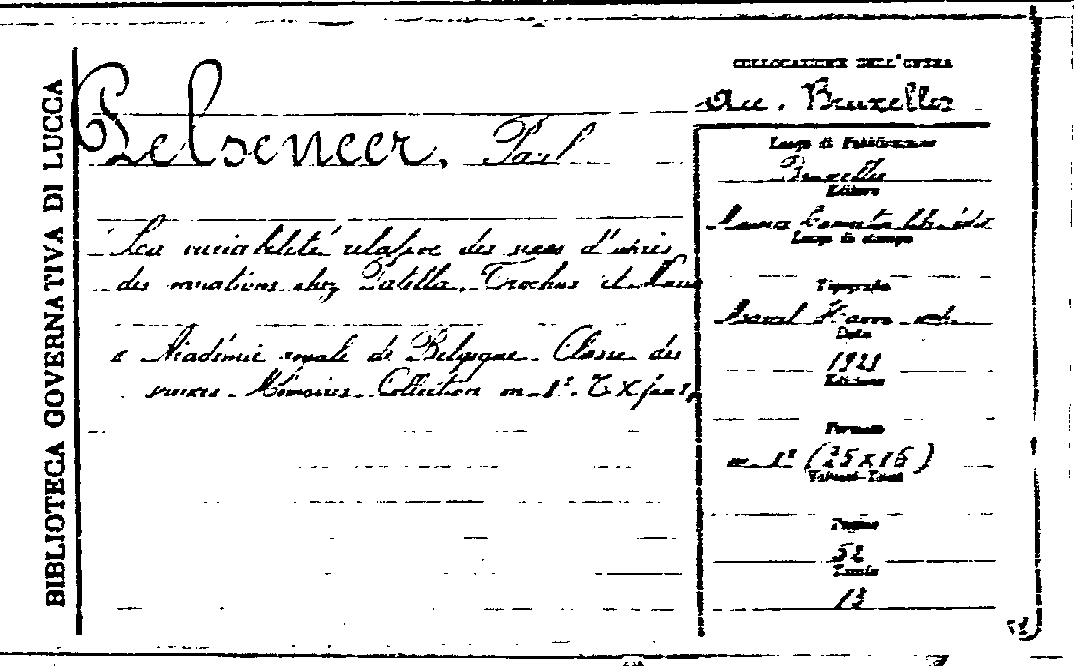 BIBLIOTECA GOVERNATIVA DI LUCCA
Pelseneer, Paul
La variabilité relative des sexes d'après
des variations chez Patella, Trochus et
Académie royale de Belgique. Classe des
Mémoires. Collection in-8°. T. X fasc.
COLLOCAZIONE DELL'OPERA
Acc. Bruxelles
Luogo di Pubblicazione
Bruxelles
Editore
Luogo di stampa
Tipografia
Marcel Hayez
Data
Edizione
Formato
(25x16)
Volumi-Tomi
Pagine
52
Tavole
13